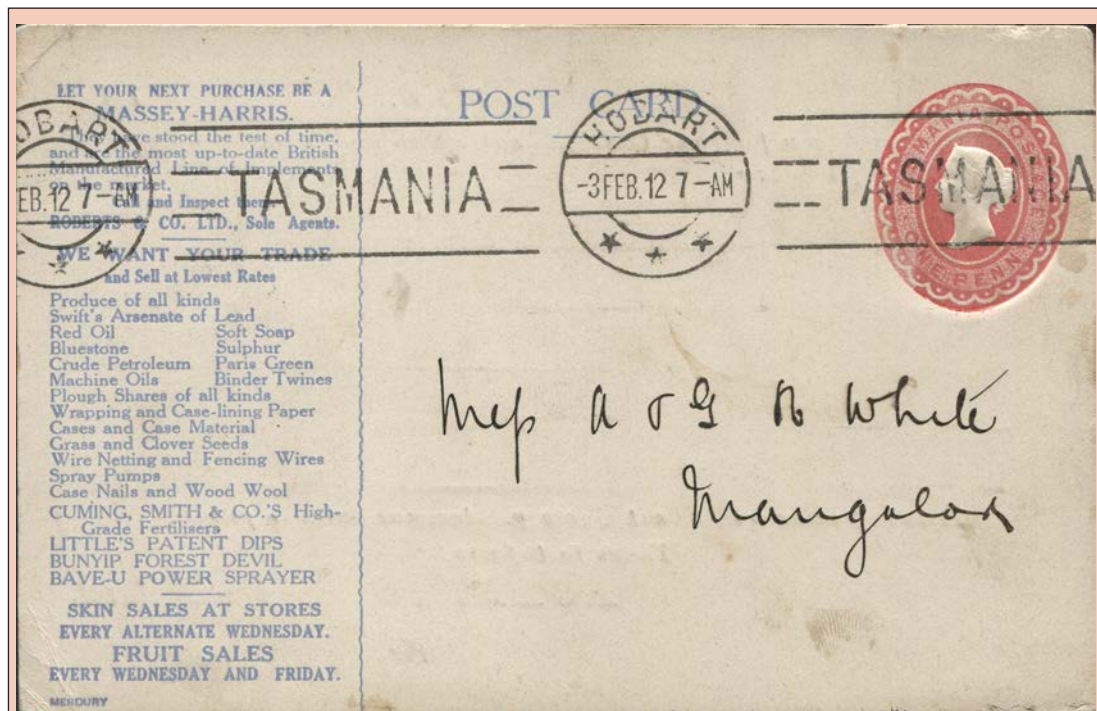 LET YOUR NEXT PURCHASE BE A
MASSEY-HARRIS.
They have stood the test of time,
and are the most up-to-date British
Manufactured Line of Implements
on the market.
Call and Inspect them
ROBERTS & CO. LTD., Sole Agents.
WE WANT YOUR TRADE
and Sell at Lowest Rates
Produce of all kinds
Swift's Arsenate of Lead
Red Oil Soft Soap
Bluestone Sulphur
Crude Petroleum Paris Green
Machine Oils Binder Twines
Plough Shares of all kinds
Wrapping and Case-lining Paper
Cases and Case Material
Grass and Clover Seeds
Wire Netting and Fencing Wires
Spray Pumps
Case Nails and Wood Wool
CUMING, SMITH & CO.'S High-
Grade Fertilisers
LITTLE'S PATENT DIPS
BUNYIP FOREST DEVIL
BAVE-U POWER SPRAYER
SKIN SALES AT STORES
EVERY ALTERNATE WEDNESDAY.
FRUIT SALES
EVERY WEDNESDAY AND FRIDAY.
MERCURY
POST CARD
OBART
EB.12 7-AM
TASMANIA
HOBART
-3FEB.12 7-AM
TASMANIA
ONE PENNY
A & G White